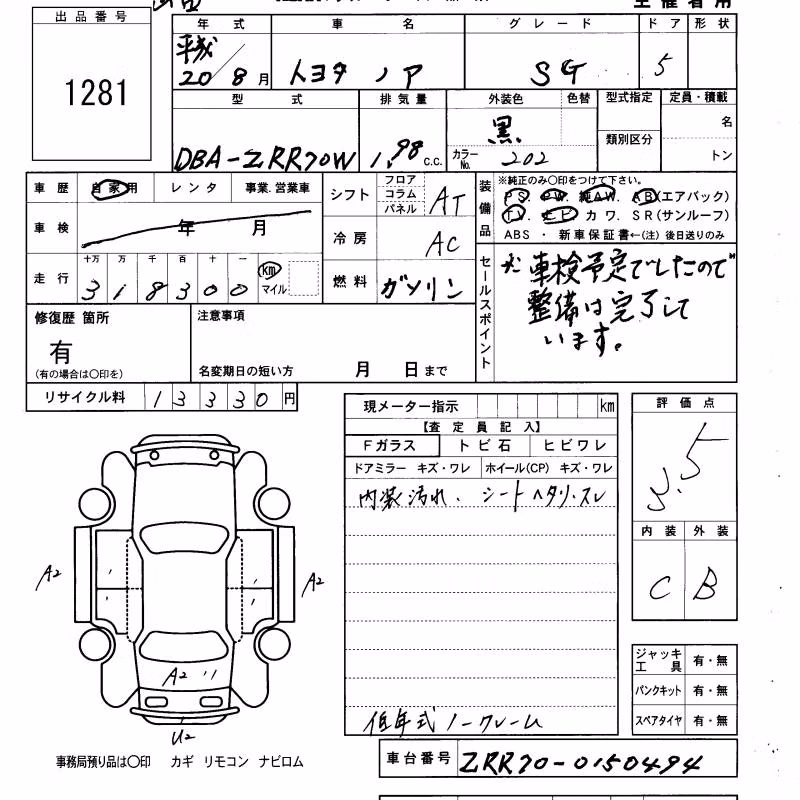 出品番号
1281
年式 車名 グレード ドア 形状
平成20/8月 トヨタ ノア SG 5
型式 排気量 外装色 色替 型式指定 定員・積載
DBA-ZRR70W 1.98 c.c. 黒 カラーNo. 202 類別区分 名
トン
車歴 自家用 レンタ 事業.営業車
車検 年 月
走行 十万 万 千 百 十 一
318300 km マイル
シフト フロア コラム パネル AT
冷房 AC
燃料 ガソリン
装備品
※純正のみ〇印をつけて下さい。
PS. PW. 純AW. AB(エアバック)
TV. ナビ カワ. SR(サンルーフ)
ABS ・ 新車保証書←(注) 後日送りのみ
セールスポイント
車検予定でしたので
整備は完了して
います。
修復歴 箇所
有
(有の場合は〇印を)
注意事項
名変期日の短い方 月 日まで
リサイクル料 13330円
現メーター指示 km
【査定員記入】
Fガラス トビ石 ヒビワレ
ドアミラー キズ・ワレ ホイール(CP) キズ・ワレ
内装汚れ、シートヘタリ・スレ
低年式ノークレーム
評価点
3.5
内装 外装
C B
A2
A2
A2
U2
ジャッキ工具 有・無
パンクキット 有・無
スペアタイヤ 有・無
事務局預り品は〇印 カギ リモコン ナビロム
車台番号 ZRR70-0150494